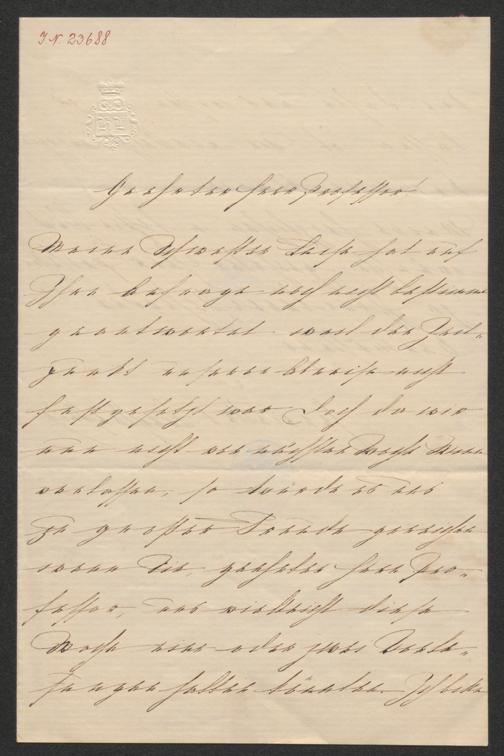 J.N. 23688
Geehrter Herr Professor
Meine Schwester Luise hat auf
Ihre Anfrage noch nicht bestimmt
geantwortet weil der Zeit-
punkt unserer Abreise nicht
festgesetzt war. Doch da wir
nun nicht vor nächster Woche Wien
verlassen, so würde es uns
zu grosser Freude gereichen
wenn Sie, geehrter Herr Pro-
fessor, uns vielleicht diese
Woche eine oder zwei Vorle-
sungen halten könnten. Ich bitte